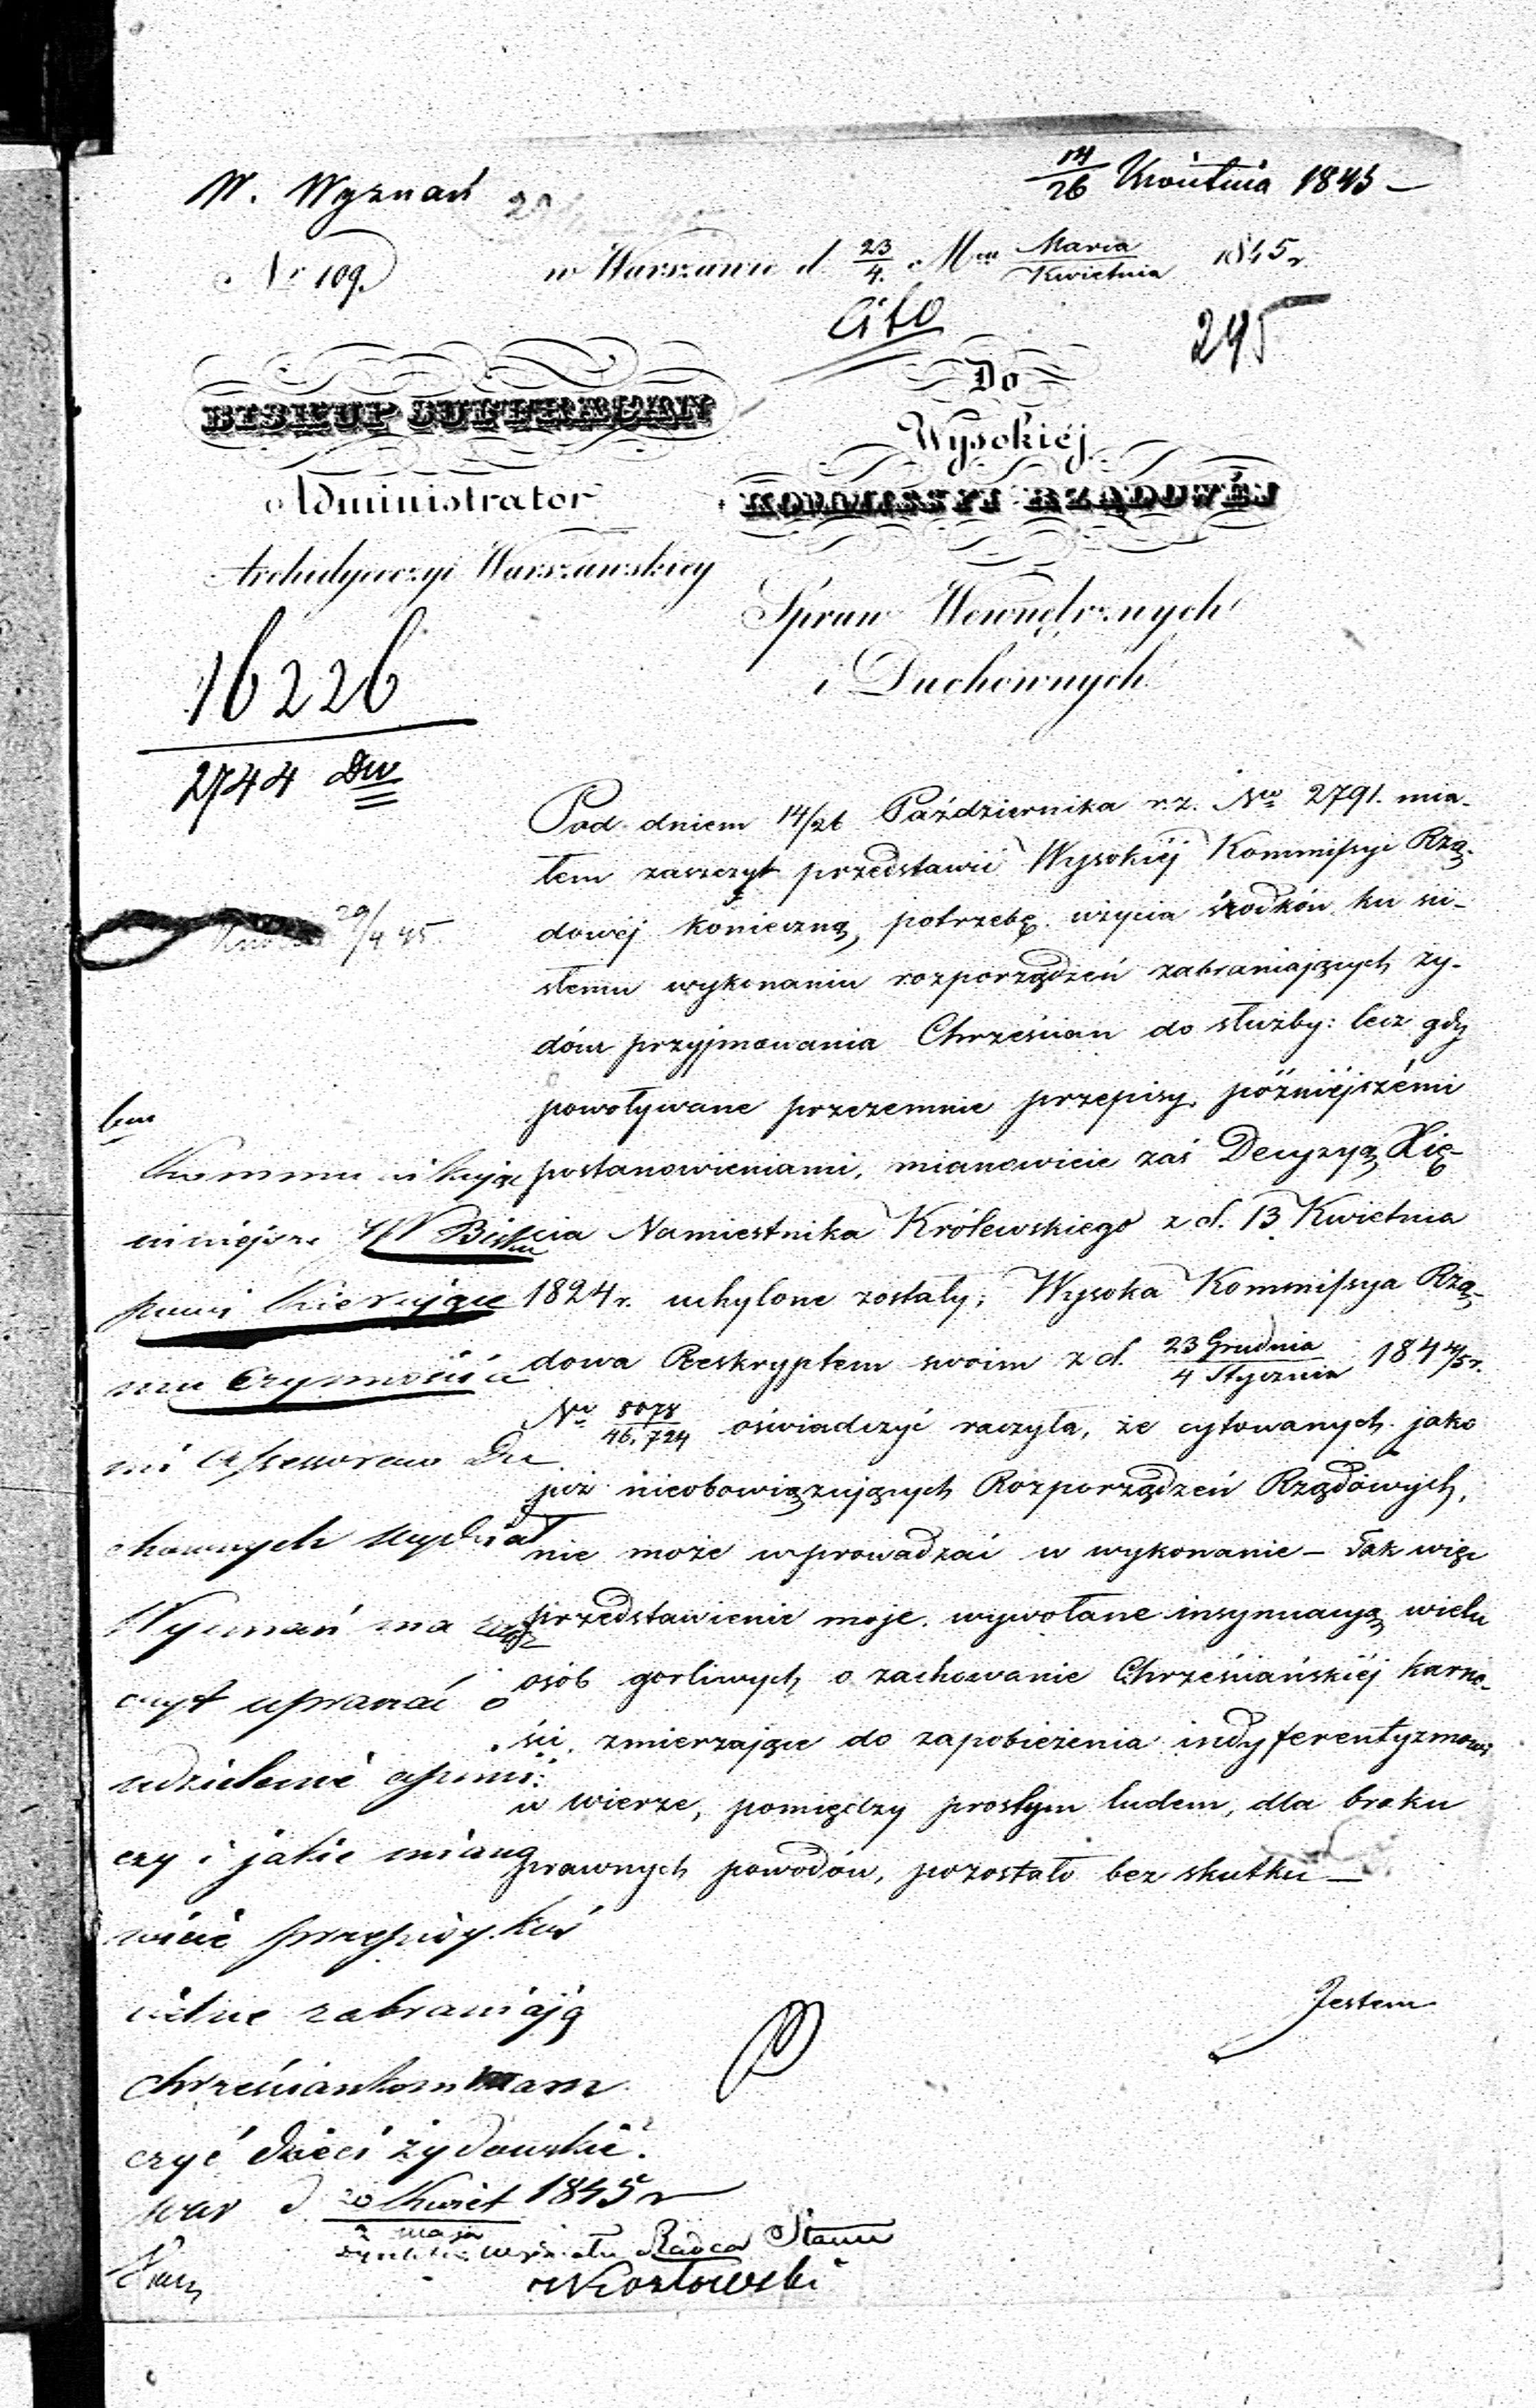 W. Wyznań
14/26 Kwietnia 1845
Nr 109.
w Warszawie d. 23/4. Mca Marca/Kwietnia 1845 r.
Cito
295
BISKUP SUFFRAGAN
Administrator
Archidyecezyi Warszawskiey
Do
Wysokiéj
KOMMISSYI RZĄDOWÉJ
Spraw Wewnętrznych
i Duchownych
16226
2744 Dw
29/4 45
Pod dniem 14/26 Października r. z. No 2791. mia-
łem zaszczyt przedstawić Wysokiéj Kommissyi Rzą-
dowéj konieczną potrzebę użycia środków ku ści-
słemu wykonaniu rozporządzeń zabraniających ży-
dom przyjmowania Chrześcian do służby: lecz gdy
powoływane przezemnie przepisy późniéjszémi
postanowieniami, mianowicie zaś Decyzyą Xię-
cia Namiestnika Królewskiego z d. 13 Kwietnia
1824 r. uchylone zostały; Wysoka Kommissya Rzą-
dowa Reskryptem swoim z d. 23 Grudnia/4 Stycznia 1844/5 r.
No 8078/46,724 oświadczyć raczyła, że cytowanych jako
już nieobowiązujących Rozporządzeń Rządowych,
nie może wprowadzać w wykonanie – Tak więc
przedstawienie moje wywołane insynuacyą wielu
osób gorliwych o zachowanie Chrześciańskiéj karno-
ści, zmierzające do zapobieżenia indyferentyzmowi
w wierze, pomiędzy prostym ludem, dla braku
prawnych powodów, pozostało bez skutku –
Jestem
Kommunikując
niniejsze JW Bisku
powi Kierujące
mu Czynnościa
mi Assessorów Du
chownych Wydział
Wyznań ma zasz
czyt upraszać o
udzielenie opinii:
czy i jakie miano
wicie przepisy koś
cielne zabraniają
chrześciankom mam
czyć dzieci żydowskie?
War d. 20 Kwiet/2 maja 1845 r
Dyrektor Wydziału Radca Stanu
Kozłowski